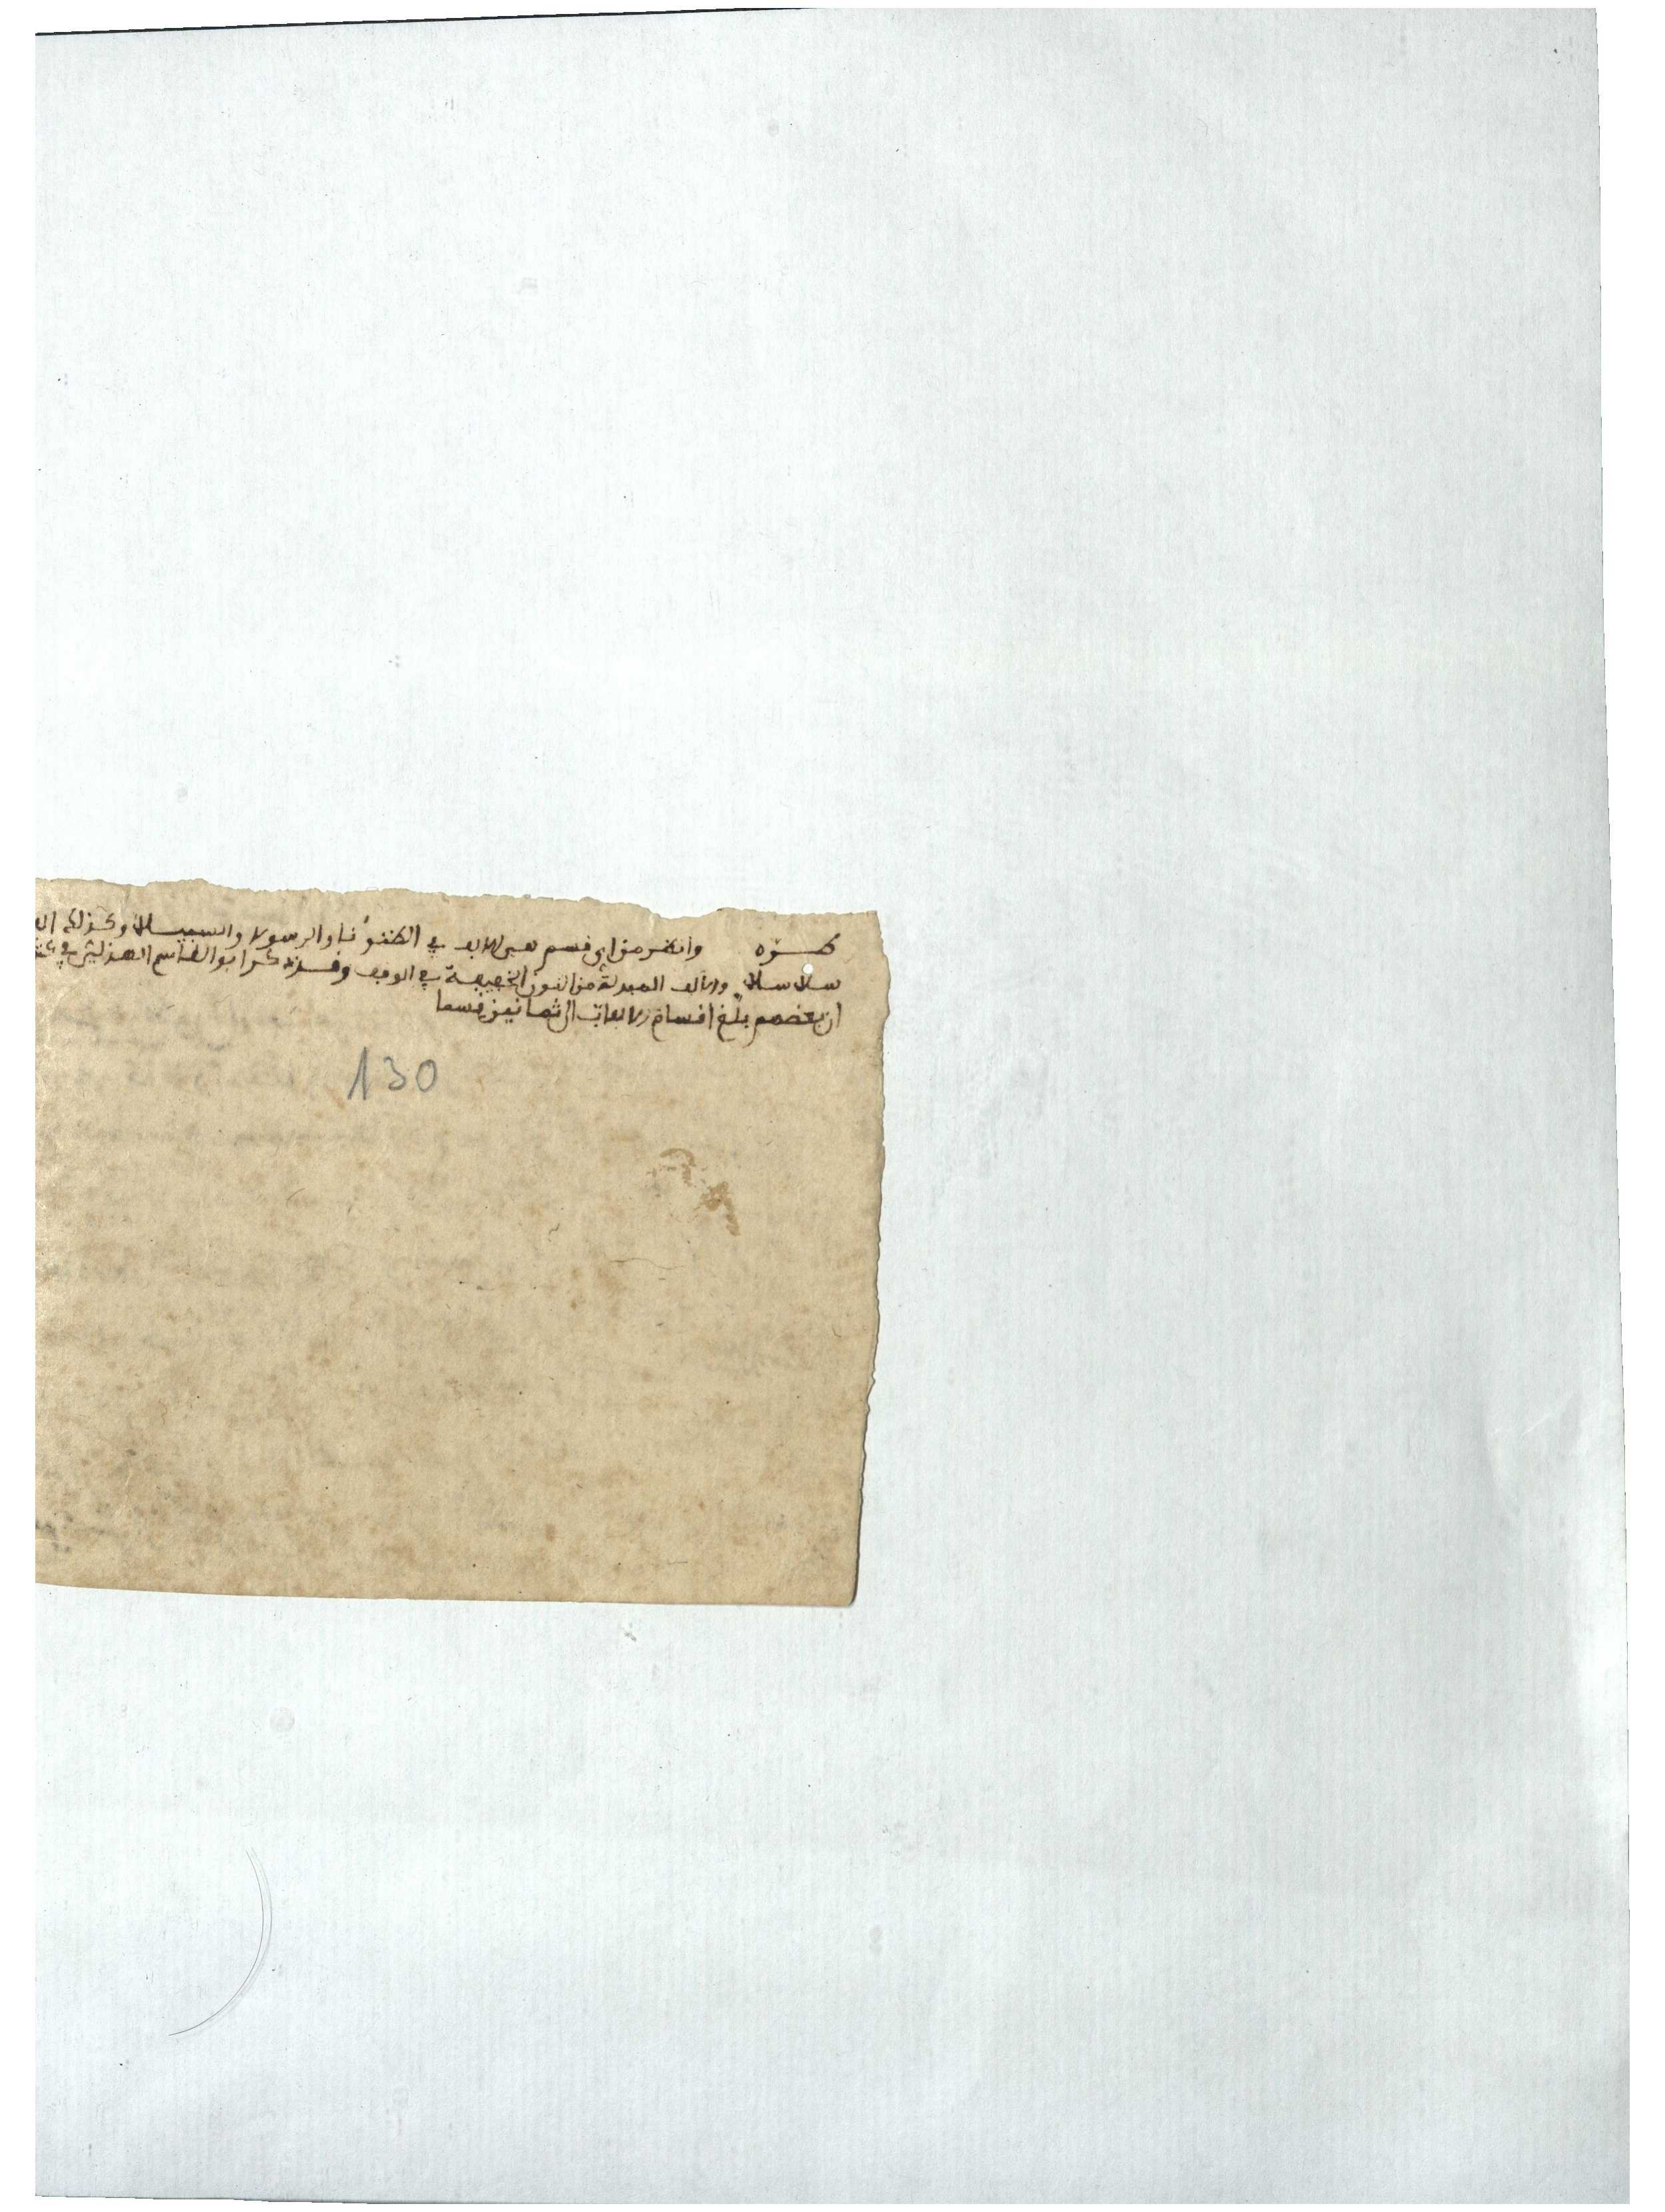 طرّه وانظر من اي قسم هي الالف في الظنونا والرسولا والسبيلا وكذلك ال
سلاسلا والالف المبدلة من النون الخفيفة في الوقف وقد ذكر ابو القاسم الهذلي في
ان بعضهم بلّغ اقسام الالفات الى ثمانين قسما
130